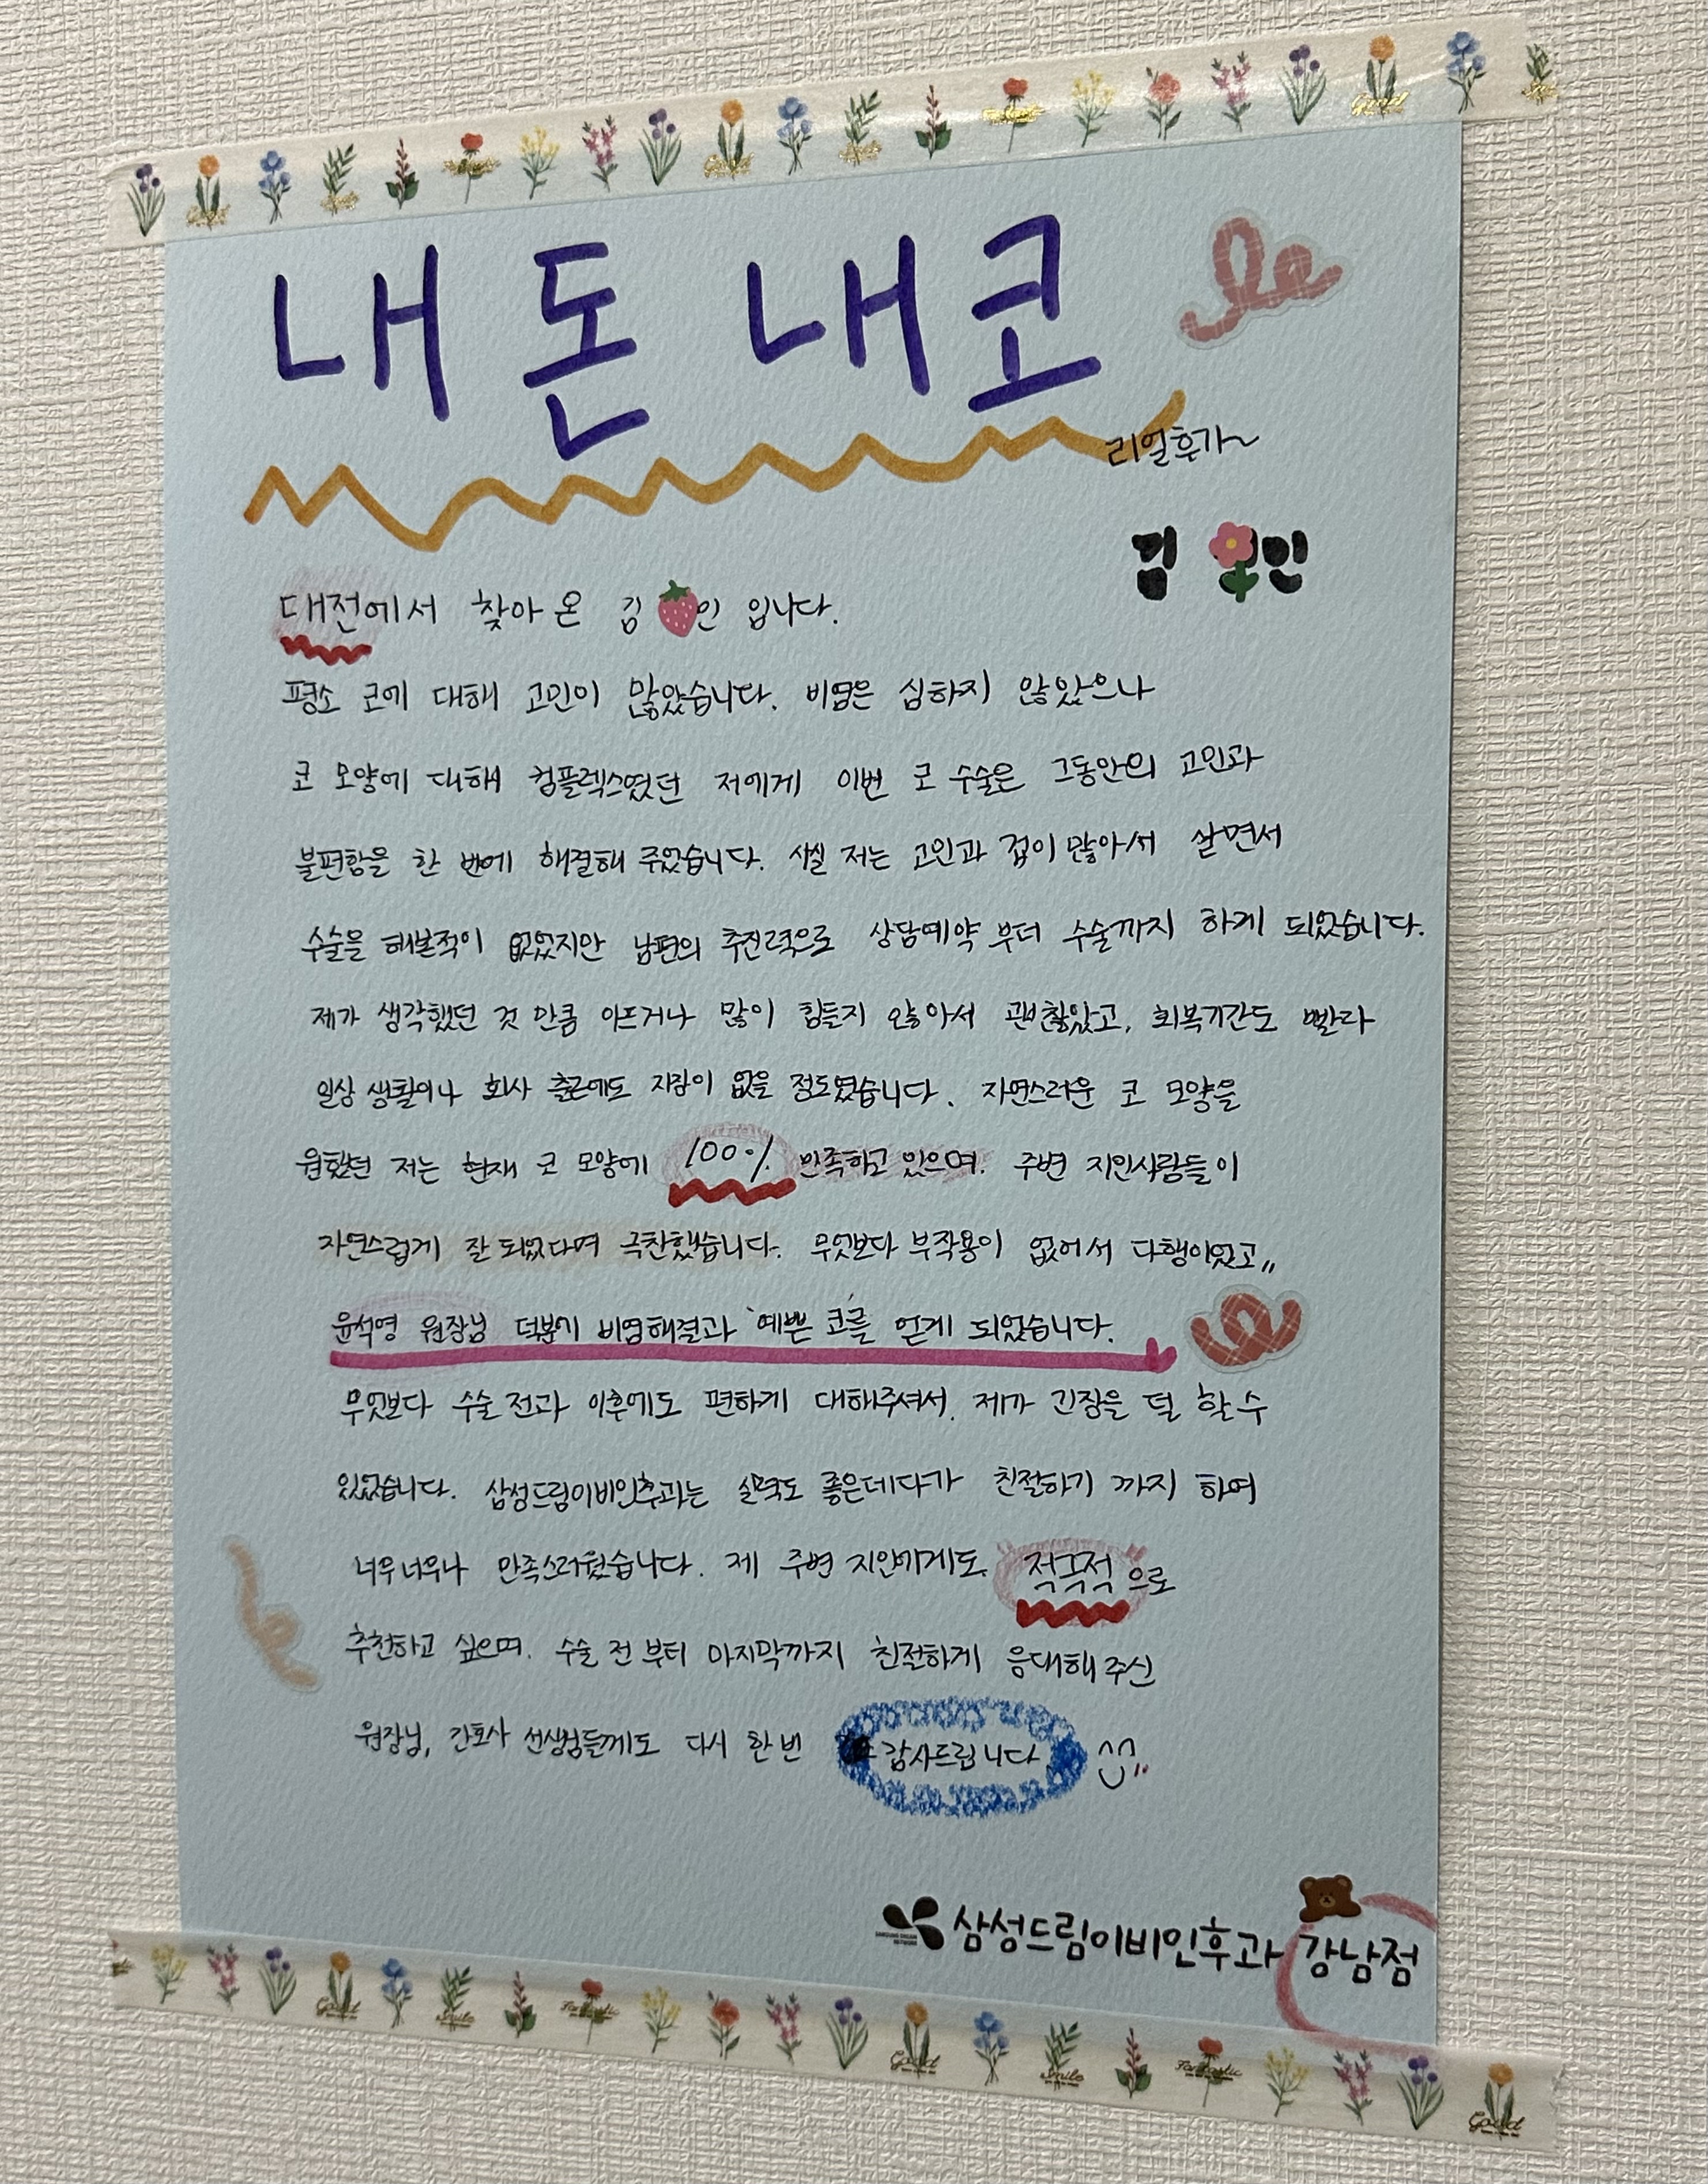 내 돈 내 코
리얼후기~
김 인
대전에서 찾아 온 김 인 입니다.
평소 코에 대해 고민이 많았습니다. 비염은 심하지 않았으나
코 모양에 대해 컴플렉스였던 저에게 이번 코 수술은 그동안의 고민과
불편함을 한 번에 해결해 주었습니다. 사실 저는 고민과 겁이 많아서 살면서
수술을 해본적이 없었지만 남편의 추진력으로 상담예약 부터 수술까지 하게 되었습니다.
제가 생각했던 것 만큼 아프거나 많이 힘들지 않아서 괜찮았고, 회복기간도 빨라
일상 생활이나 회사 출근에도 지장이 없을 정도였습니다. 자연스러운 코 모양을
원했던 저는 현재 코 모양에 100% 만족하고 있으며. 주변 지인사람들이
자연스럽게 잘 되었다며 극찬했습니다. 무엇보다 부작용이 없어서 다행이었고,,
윤석영 원장님 덕분에 비염해결과 '예쁜 코'를 얻게 되었습니다.
무엇보다 수술 전과 이후에도 편하게 대해주셔서. 제가 긴장을 덜 할 수
있었습니다. 삼성드림이비인후과는 실력도 좋은데다가 친절하기 까지 하여
너무너무나 만족스러웠습니다. 제 주변 지인에게도 적극적으로
추천하고 싶으며. 수술 전 부터 마지막까지 친절하게 응대해 주신
원장님, 간호사 선생님들께도 다시 한 번 감사드립니다
삼성드림이비인후과 강남점
Good Smile Fantastic Good Smile Fantastic Good